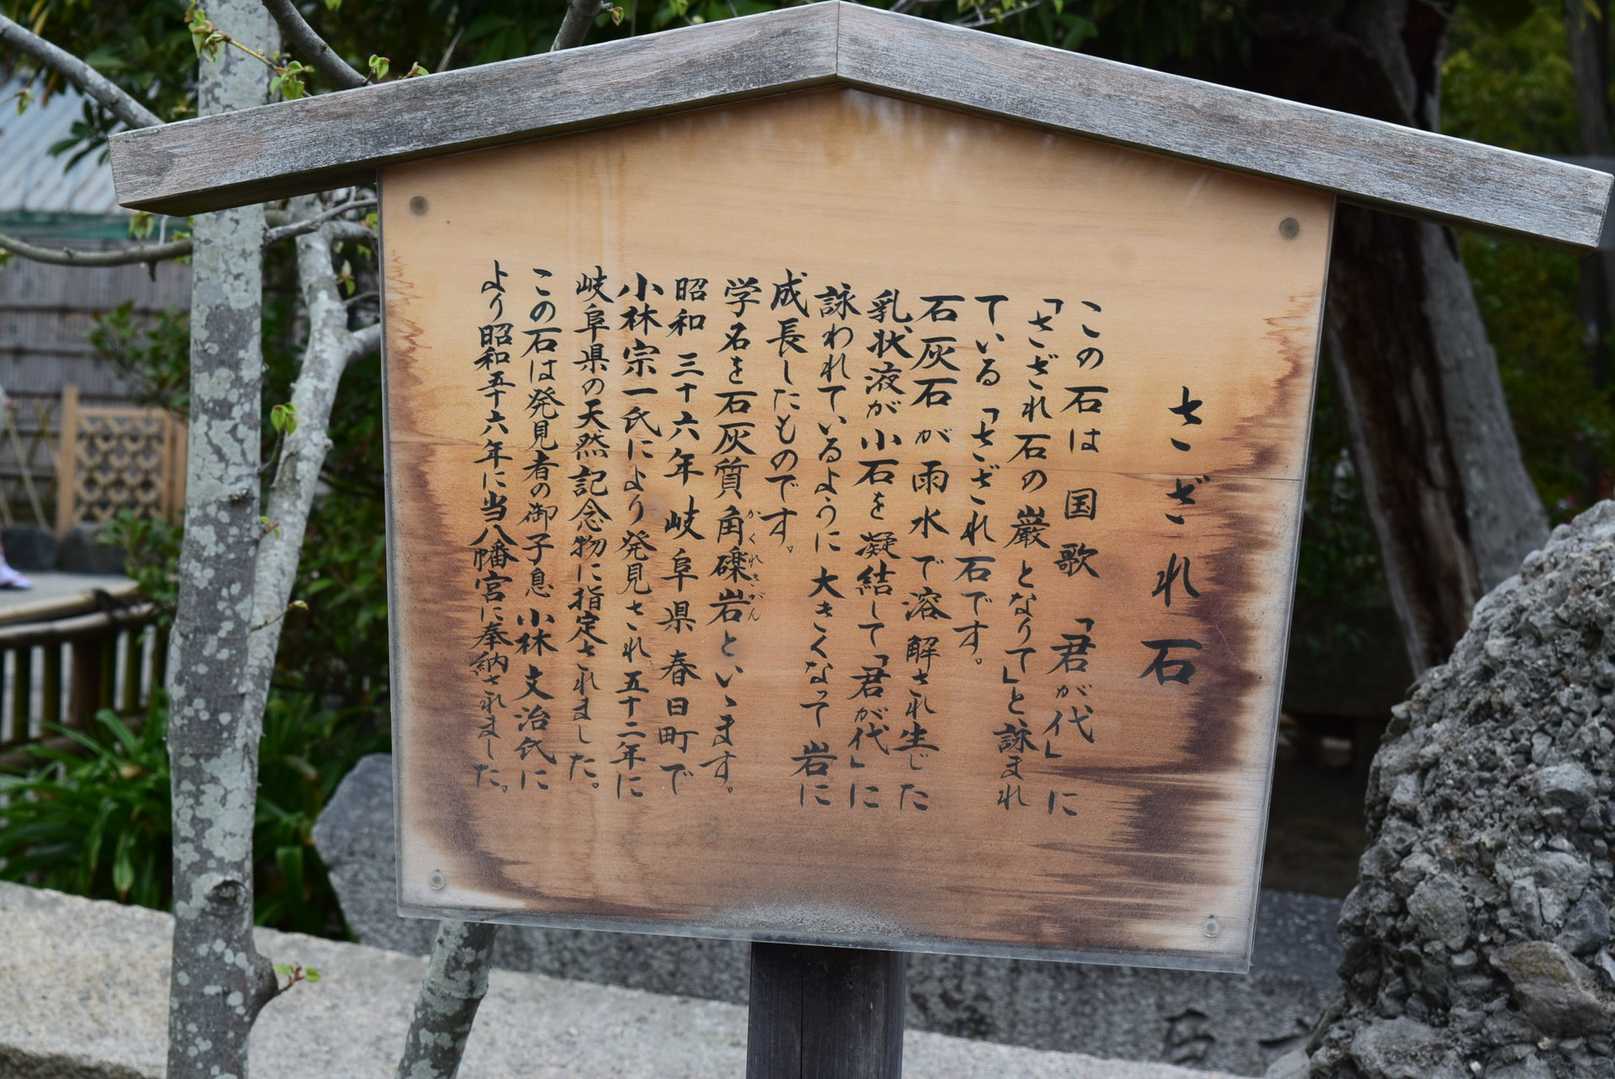 さざれ石
この石は 国歌 「君が代」に
「さざれ石の巌となりて」と詠まれ
ている「さざれ石です。
石灰石が雨水で溶解され生じた
乳状液が小石を凝結して「君が代」に
詠われているように大きくなって岩に
成長したものです。
学名を石灰質角礫岩といゝます。
がくれきがん
昭和 三十六年 岐阜県 春日町で
小林宗一氏により発見され五十二年に
岐阜県の天然記念物に指定されました。
この石は発見者の御子息 小林文治氏に
より昭和五十六年に当八幡宮に奉納されました。